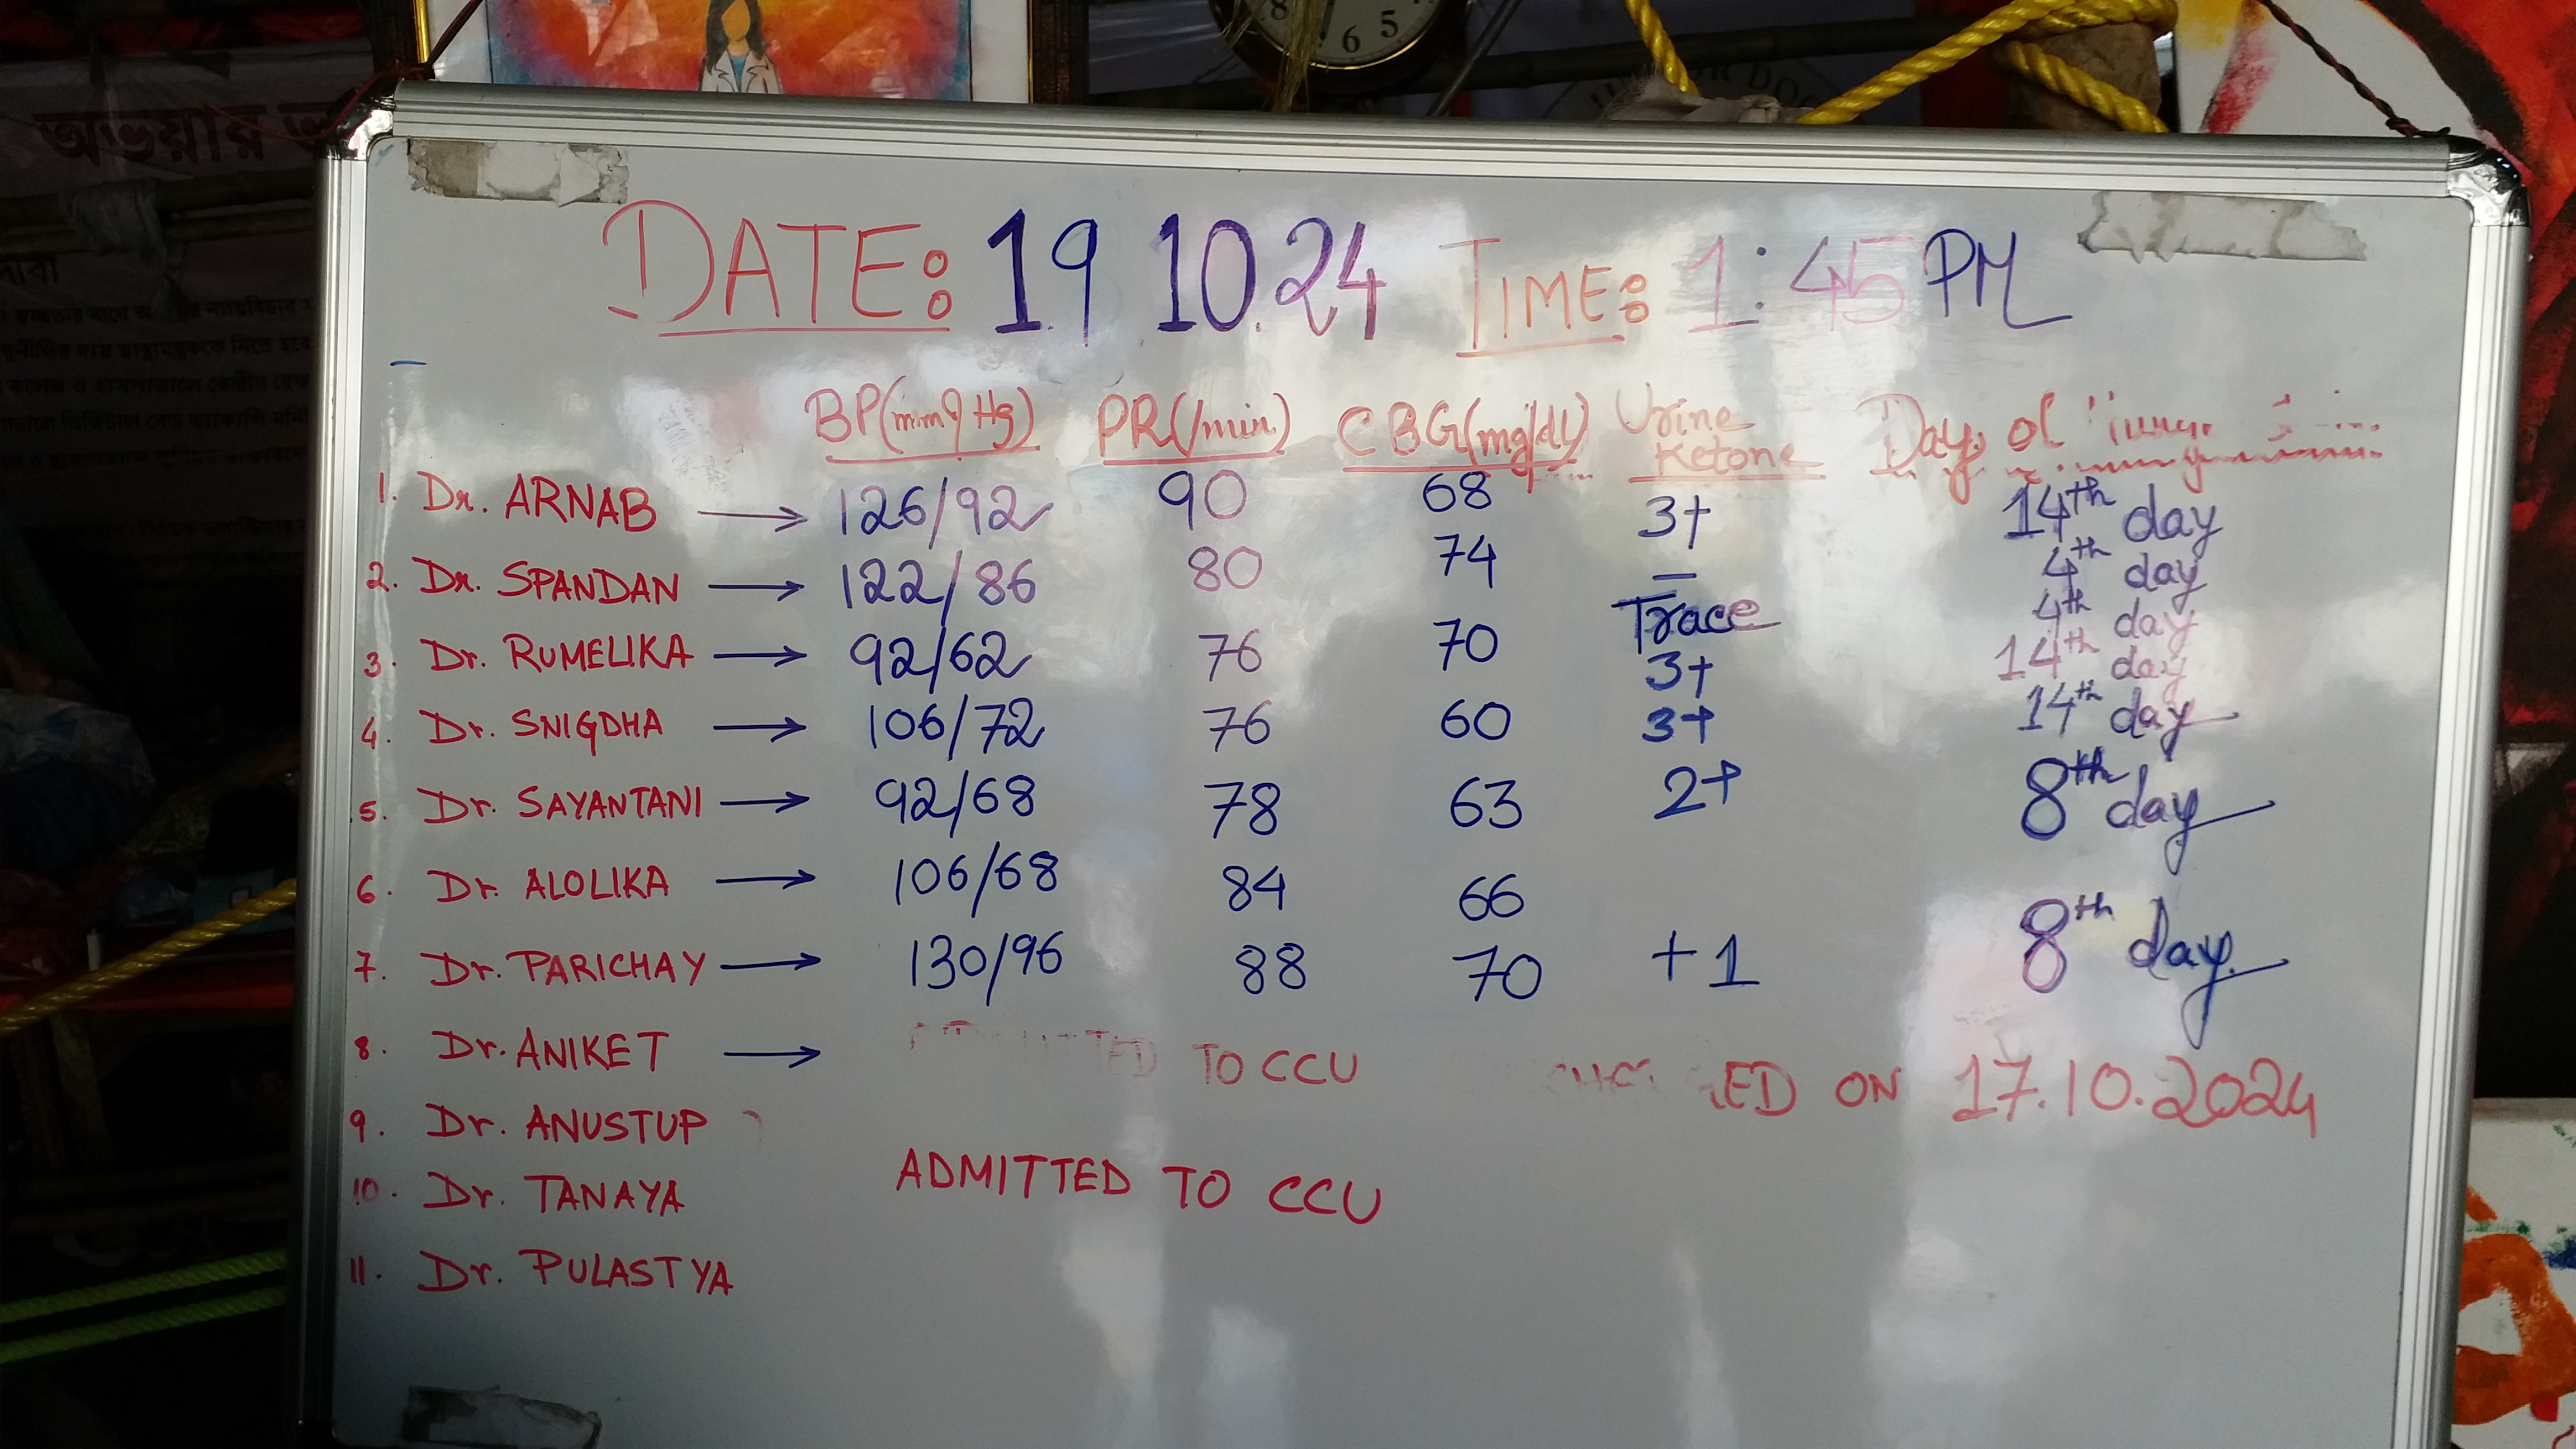 8 6 5
JUNIOR DOC
অভয়ার
DATE: 19.10.24 TIME: 1:45 PM
BP(mm of Hg) PR(/min) CBG(mg/dl) Urine Ketone Day of
1. Dr. ARNAB → 126/92 90 68 3+ 14th day
2. Dr. SPANDAN → 122/86 80 74 — 4th day
3. Dr. RUMELIKA → 92/62 76 70 Trace 4th day
4. Dr. SNIGDHA → 106/72 76 60 3+ 14th day
5. Dr. SAYANTANI → 92/68 78 63 3+ 14th day
6. Dr. ALOLIKA → 106/68 84 66 2+ 8th day
7. Dr. PARICHAY → 130/96 88 70 +1 8th day
8. Dr. ANIKET → TO CCU ON 17.10.2024
9. Dr. ANUSTUP
10. Dr. TANAYA ADMITTED TO CCU
11. Dr. PULASTYA